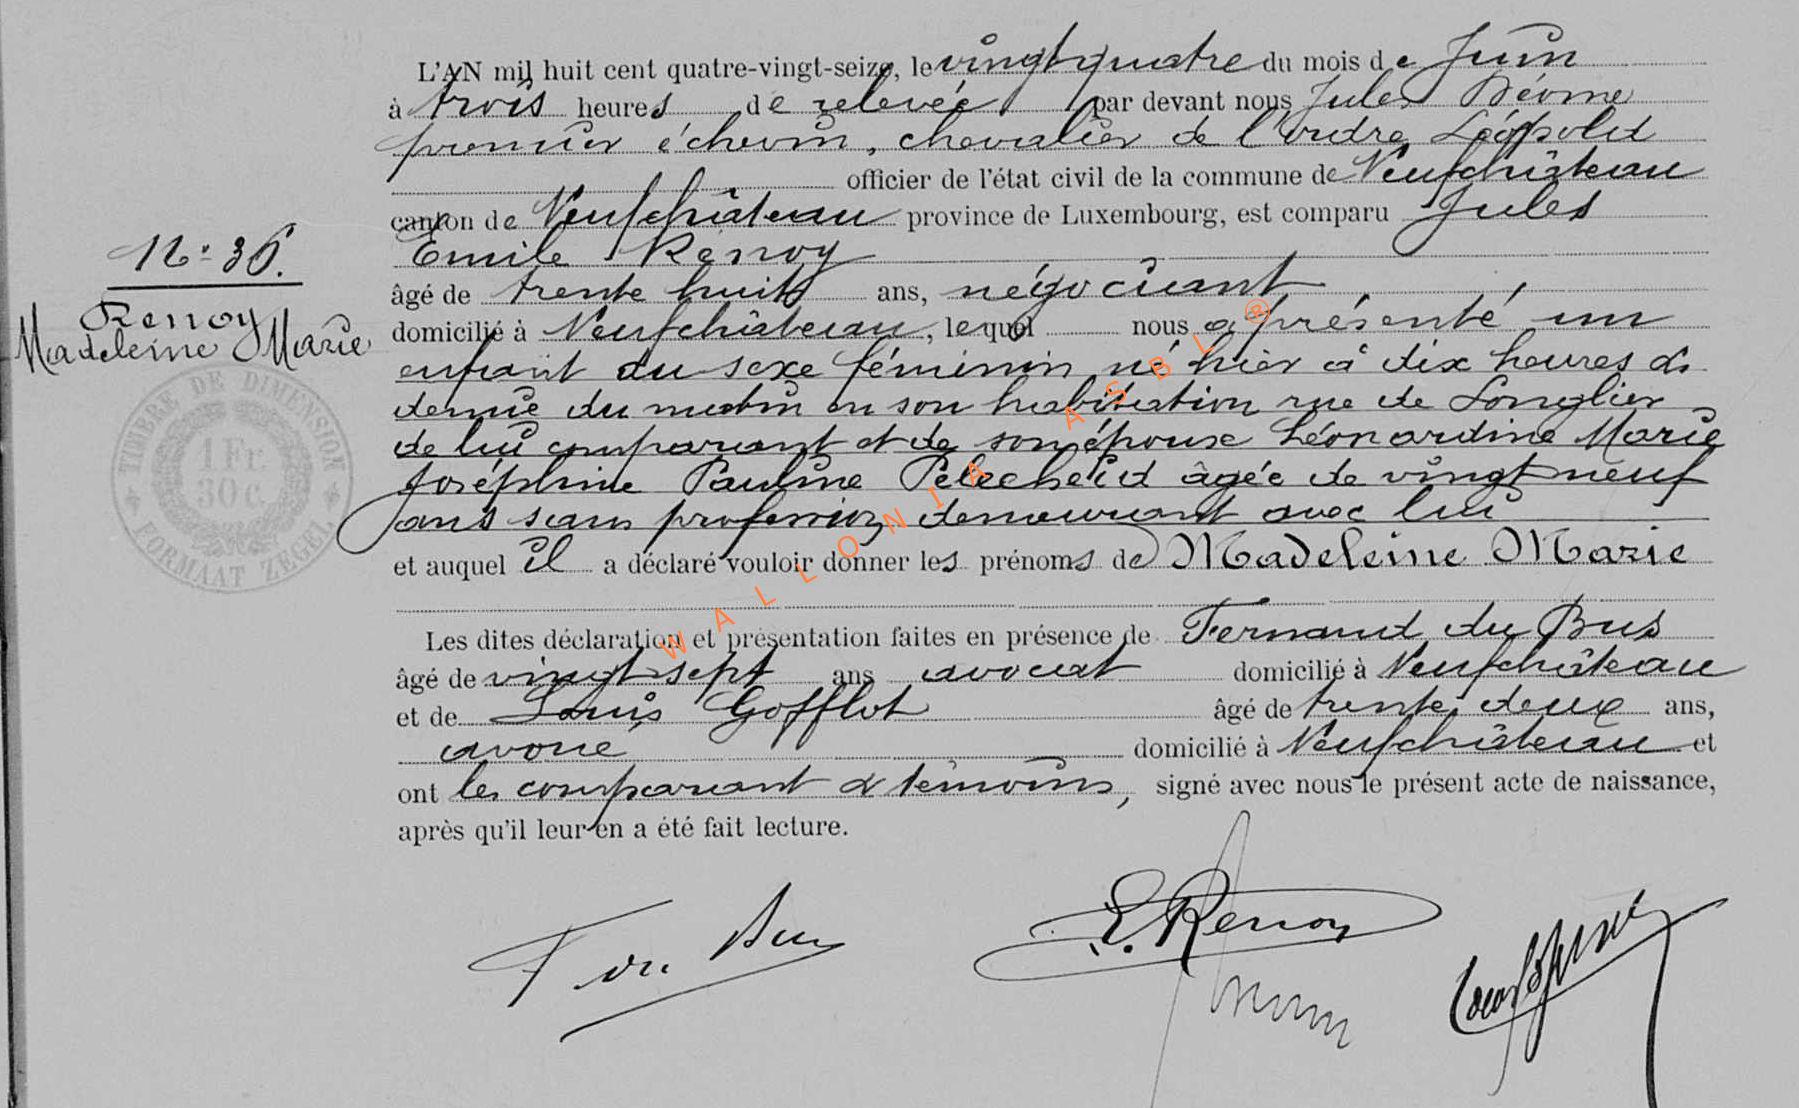 L'AN mil huit cent quatre-vingt-seize, le vingt quatre du mois de Juin
à trois heures de relevée par devant nous Jules
premier échevin, chevalier de l'ordre Léopold
officier de l'état civil de la commune de Neufchâteau
canton de Neufchâteau province de Luxembourg, est comparu Jules
Emile Renoy
âgé de trente huit ans, négociant
domicilié à Neufchâteau, lequel nous a présenté un
enfant du sexe féminin né hier à dix heures &
demie du matin en son habitation rue de Longlier
de lui comparant et de son épouse Léonardine Marie
Joséphine Pauline Pelecheid âgée de vingt neuf
ans sans profession demeurant avec lui
et auquel il a déclaré vouloir donner les prénoms de Madeleine Marie
Les dites déclaration et présentation faites en présence de Fernand du Bus
âgé de vingt sept ans avocat domicilié à Neufchâteau
et de Louis Gofflot âgé de trente deux ans,
avoué domicilié à Neufchâteau et
ont les comparant & témoins, signé avec nous le présent acte de naissance,
après qu'il leur en a été fait lecture.
N° 36.
Renoy
Madeleine Marie
TIMBRE DE DIMENSION
1 Fr.
30 c.
FORMAAT ZEGEL
WALLONIA ASBL ®
F du Bus
E. Renoy